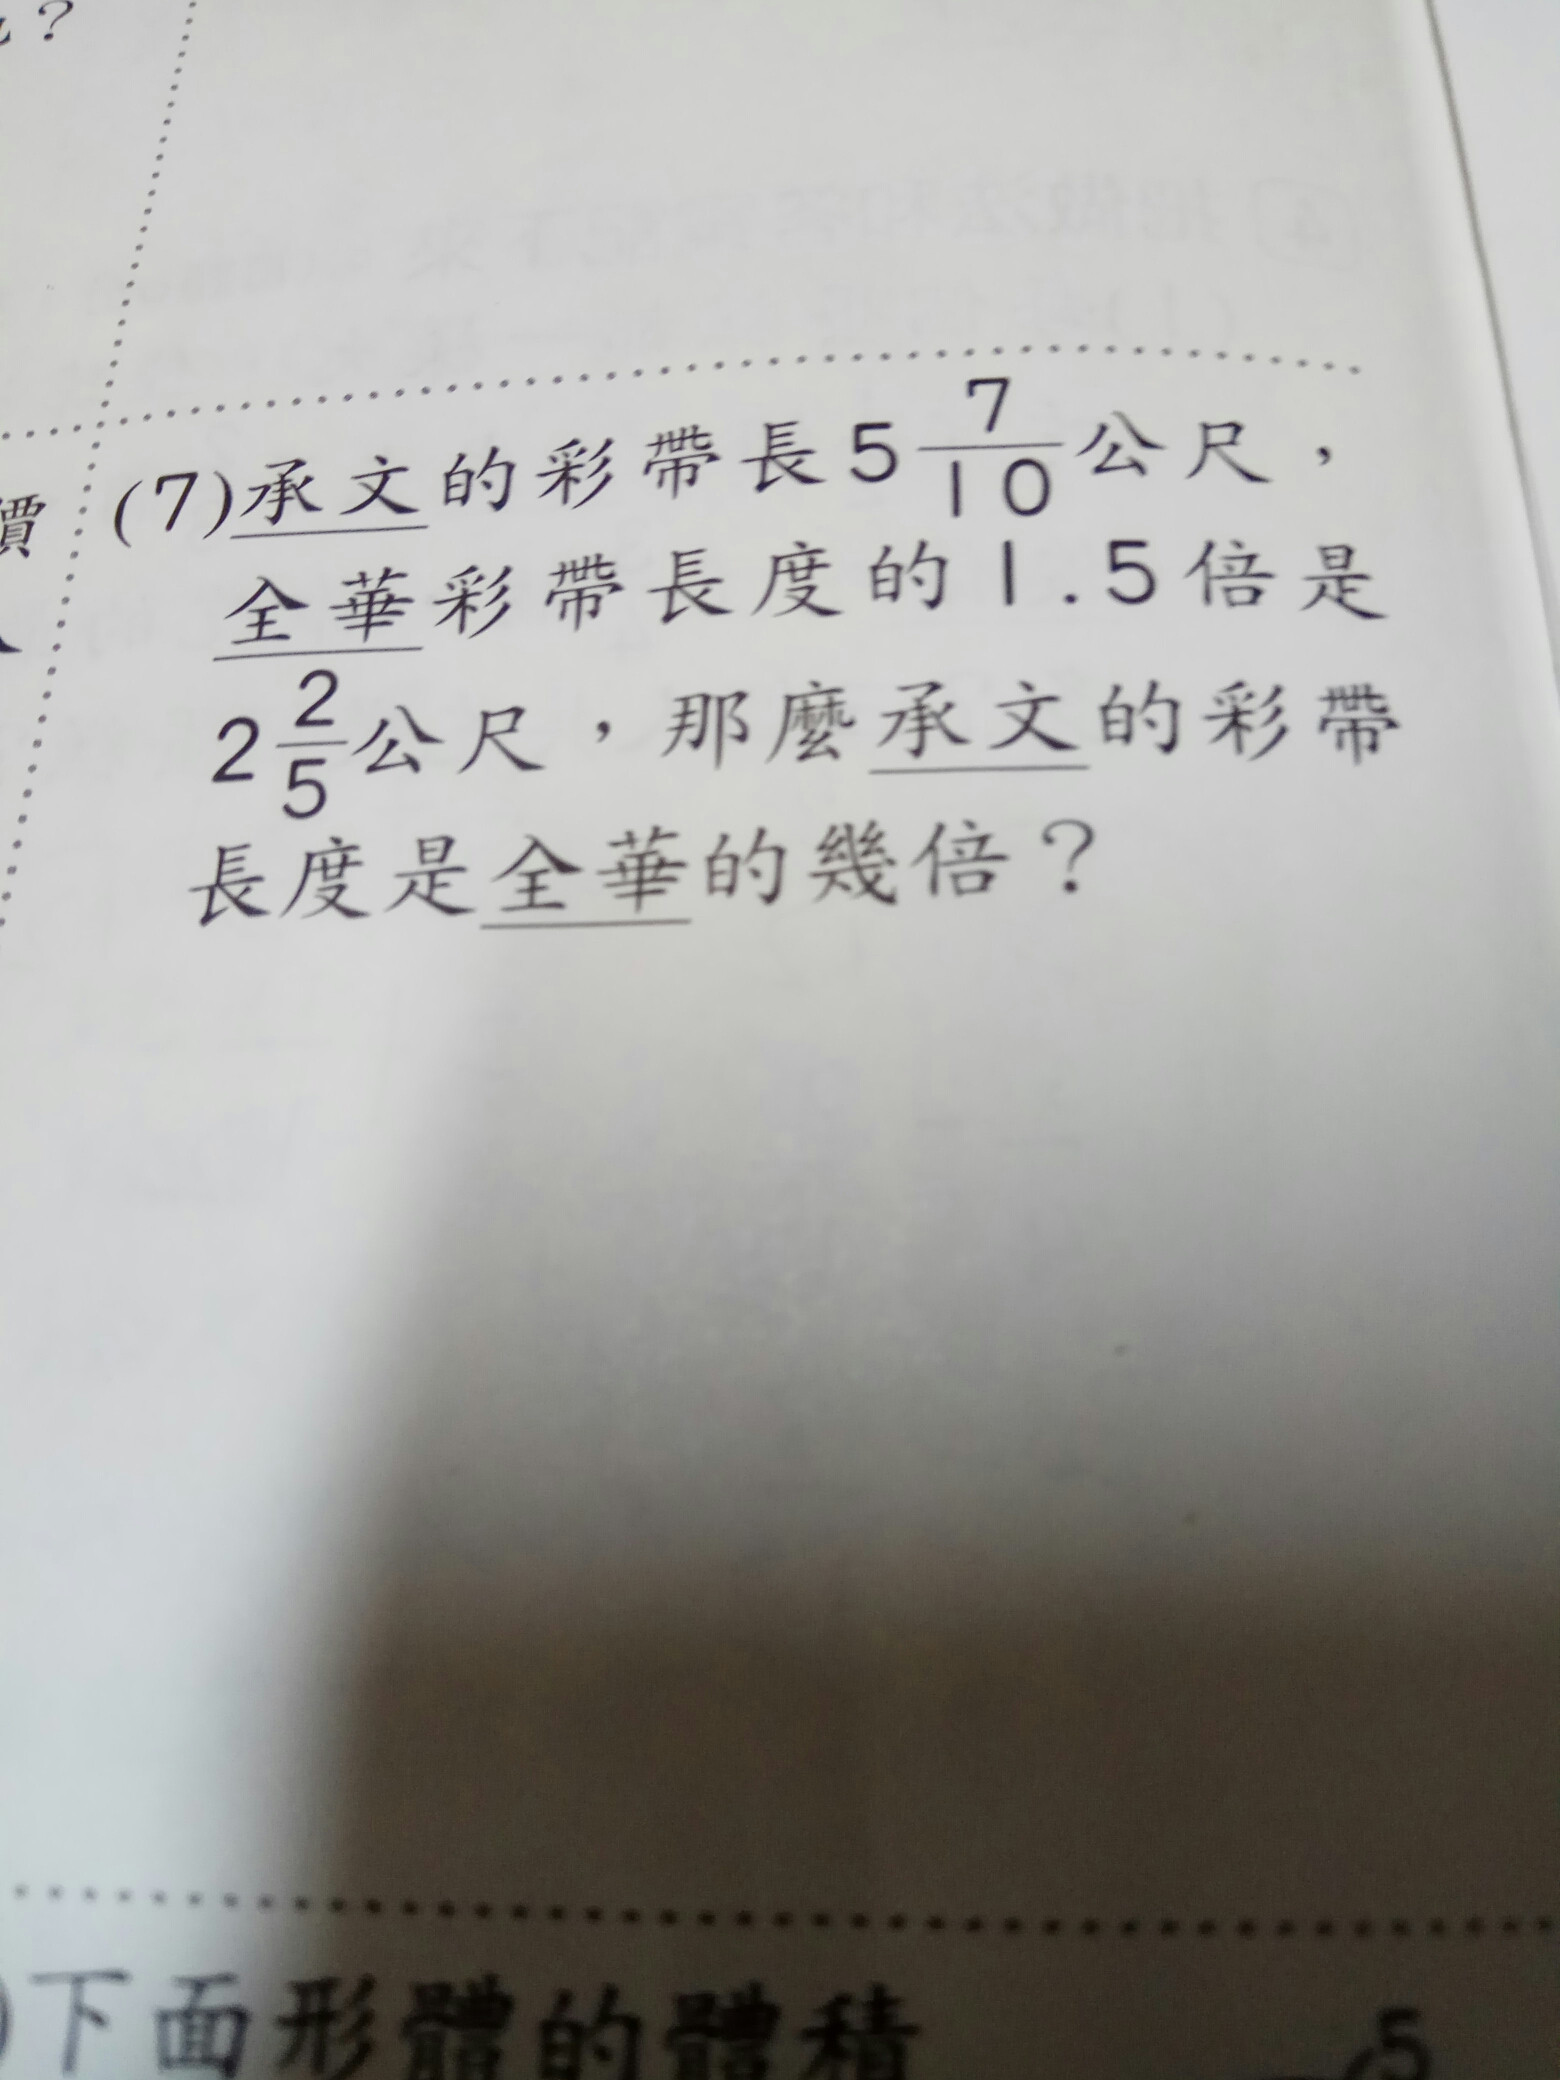 ？
價
(7)承文的彩帶長5 7/10公尺，
全華彩帶長度的1.5倍是
2 2/5公尺，那麼承文的彩帶
長度是全華的幾倍？
)下面形體的體積
5